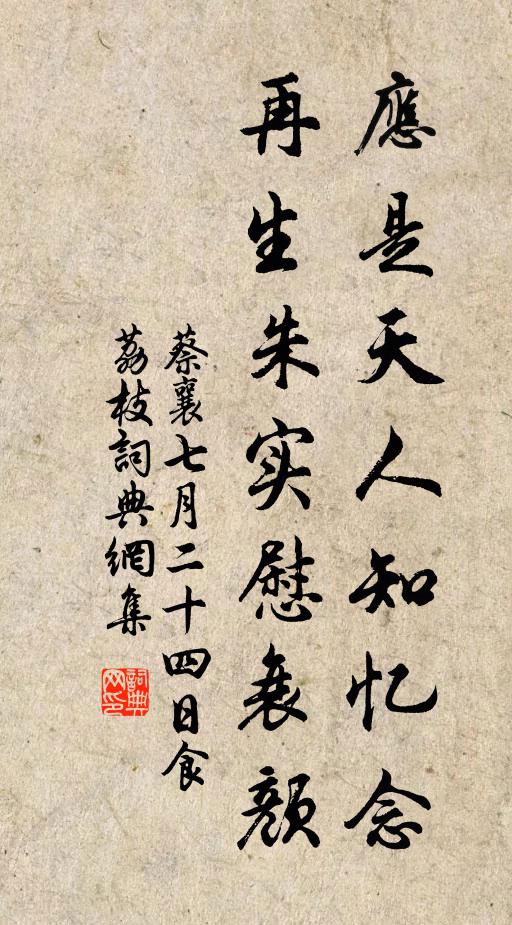 應是天人知忆念
再生朱实慰衰颜
蔡襄七月二十四日食
荔枝詞典網集
詞典网印